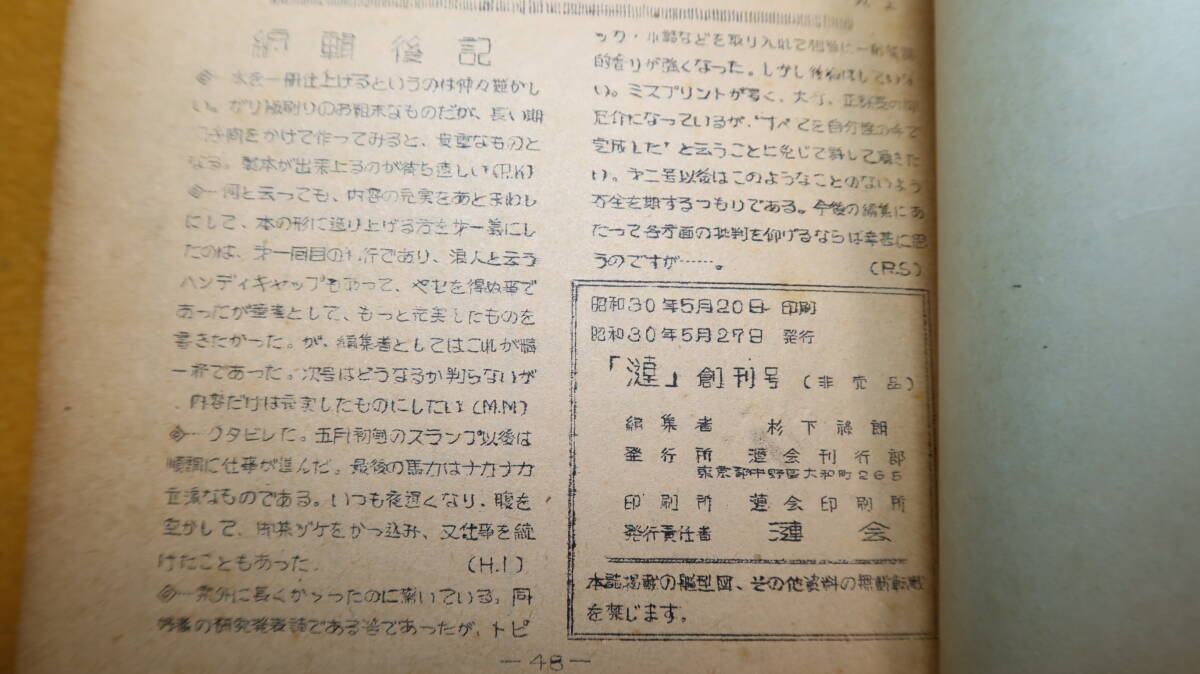 編輯後記
◈…本を一冊仕上げるというのは仲々難かし
い。ガリ版刷りのお粗末なものだが、長い期
をかけて作ってみると、貴重なものと
なる。製本が出来上るのが待ち遠しい(P.K)
◈…何と云っても、内容の充実をあとまわし
にして、本の形に造り上げる方を才一義にし
たのは、才一回目の刊行であり、浪人と云う
ハンディキャップもあって、やむを得ぬ事で
あったが筆者として、もっと充実したものを
書きたかった。が、編集者としてはこれが精
一杯であった。次号はどうなるか判らないが
内容だけは充実したものにしたい(M.M)
◈…クタビレた。五月初旬のスランプ以後は
順調に仕事が進んだ。最後の馬力はナカナカ
立派なものである。いつも夜遅くなり、腹を
空かして、御茶ヅケをかっ込み、又仕事を続
けたこともあった.(H.I)
◈…案外に長くかゝったのに驚いている。同
好者の研究発表誌である筈であったが、トピ
ック・小説などを取り入れて
的香りが強くなった。しかし後悔はしていな
い。ミスプリントが多く、大分、正誤表の御
厄介になっているが、"すべてを自分達の手で
完成した"と云うことに免じて許して頂きた
い。才二号以後はこのようなことのないよう
万全を期するつもりである。今後の編集にあ
たって各方面の批判を仰げるならば幸甚に思
うのですが……。(R.S)
昭和30年5月20日 印刷
昭和30年5月27日 発行
「漣」創刊号(非売品)
編集者 杉下禄朗
発行所 漣会刊行部
東京都中野區大和町265
印刷所 漣会印刷所
発行責任者 漣会
本誌掲載の艦型図、その他資料の無断転載
を禁じます。
—48—